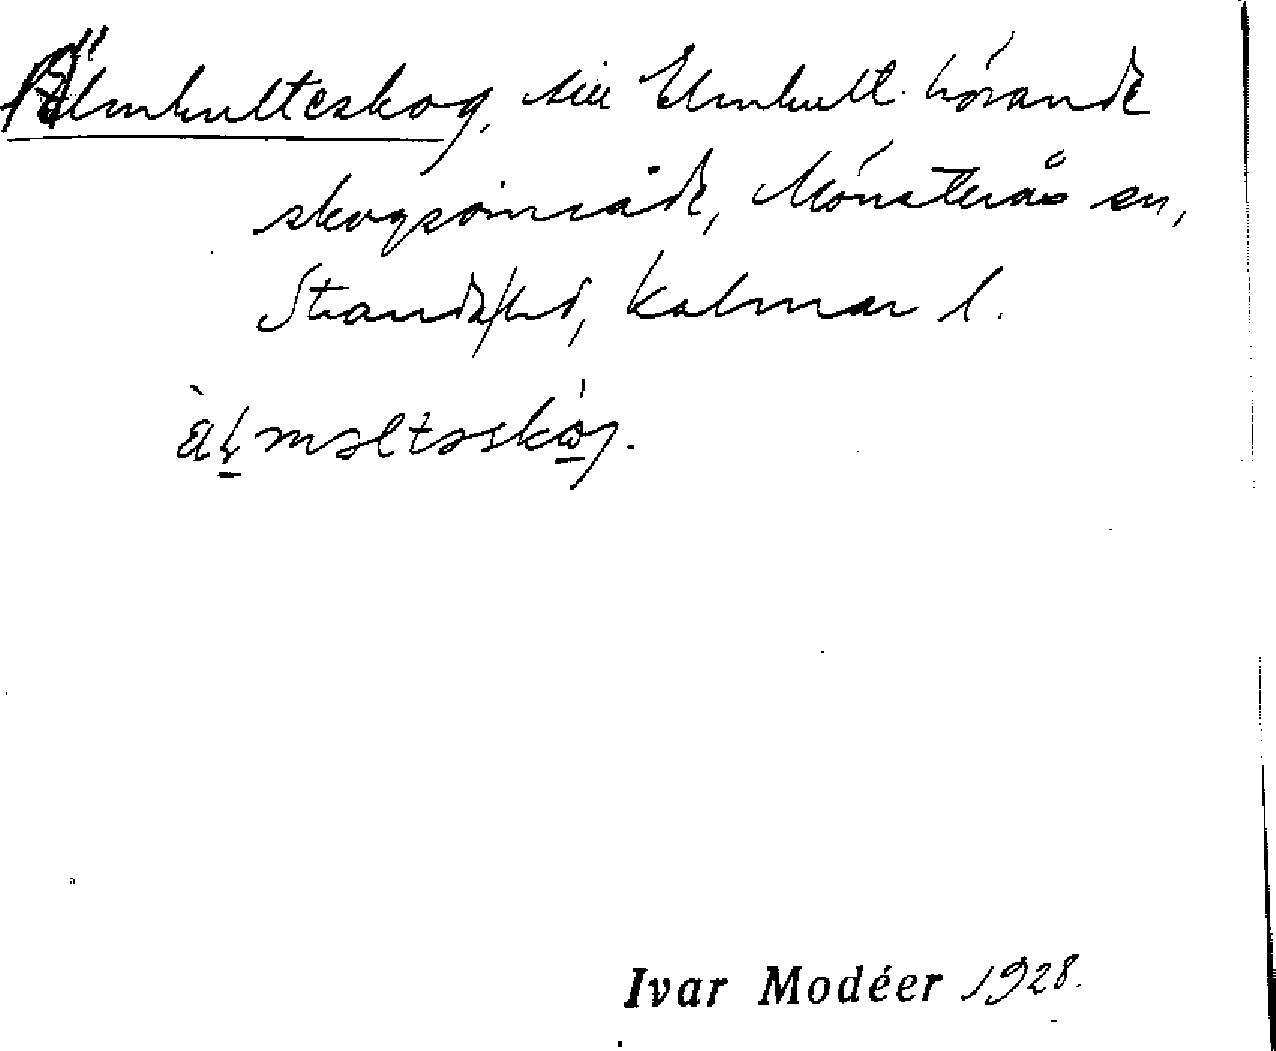 Älmhulteskog, till Elmhult hörande
skogsområde, Mönsterås sn,
Stranda hd, Kalmar l.
Ivar Modéer 1928.